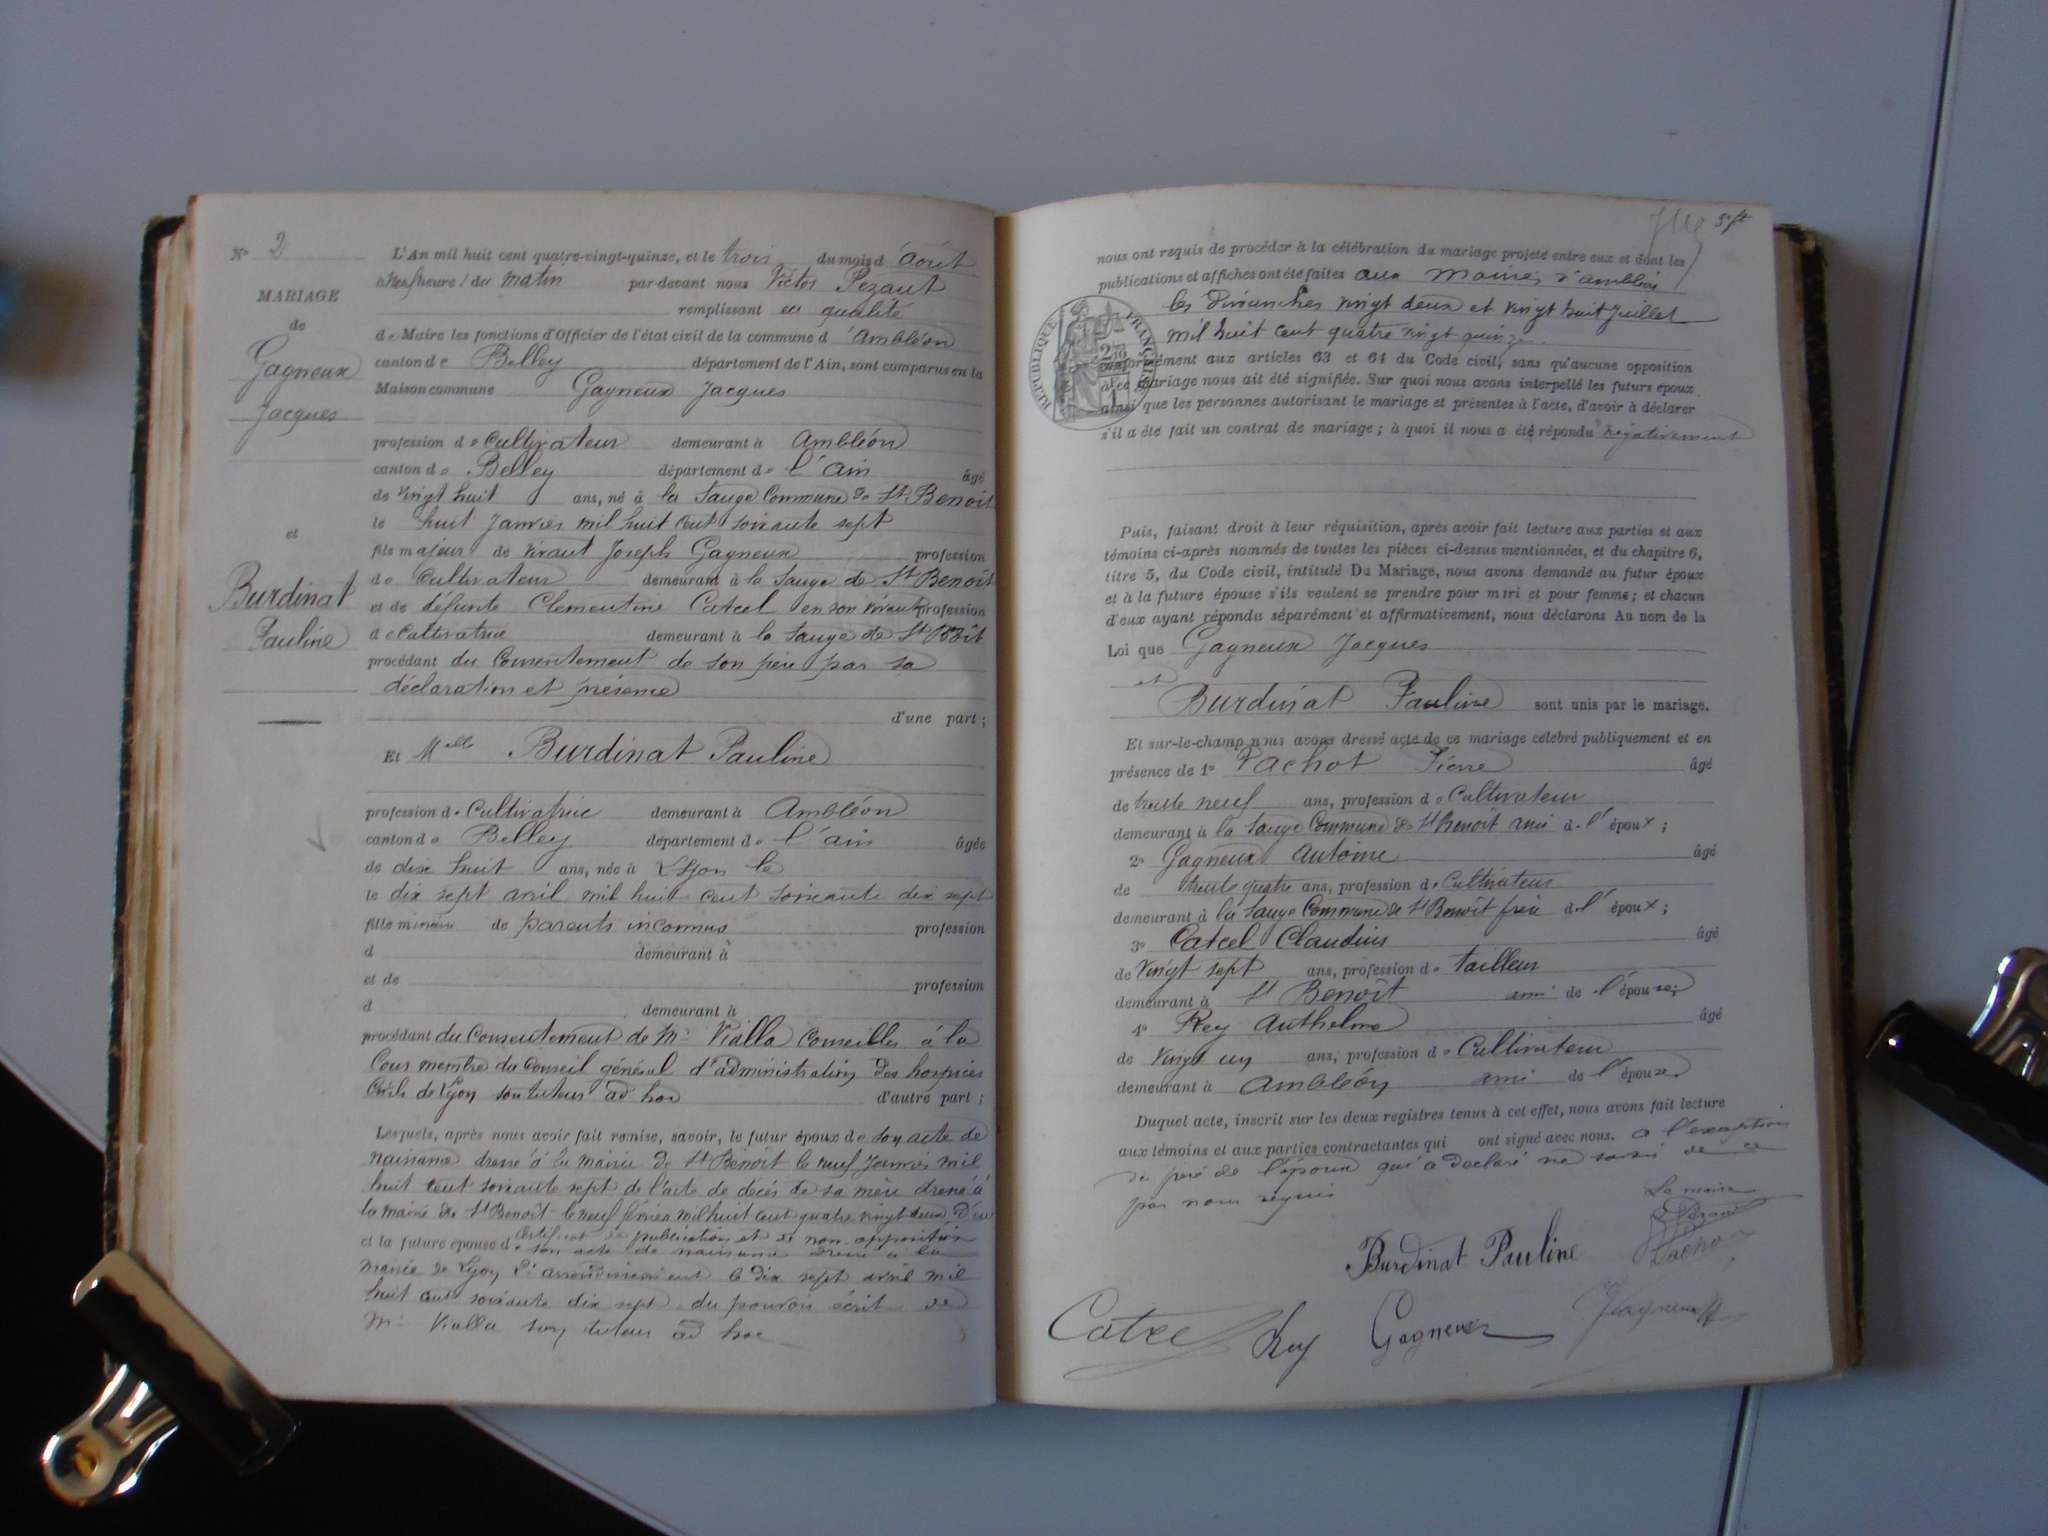 N° 2
MARIAGE
de
Gagneux
Jacques
et
Burdinat
Pauline
L'An mil huit cent quatre-vingt-quinze, et le trois du mois d'Août
à neuf heure / du matin par-devant nous Victor Pezaut
remplissant en qualité
de Maire les fonctions d'Officier de l'état civil de la commune d'Ambléon
canton de Belley département de l'Ain, sont comparus en la
Maison commune Gagneux Jacques
profession de Cultivateur demeurant à Ambléon
canton de Belley département de l'ain âgé
de vingt huit ans, né à la Sauge Commune de St Benoit
le huit Janvier mil huit cent soixante sept
fils majeur de vivant Joseph Gagneux profession
de Cultivateur demeurant à la Sauge de St Benoit
et de défunte Clementine Catcel en son vivant profession
de Cultivatrice demeurant à la Sauge de St
procédant du Consentement de son père par sa
déclaration et présence
d'une part ;
Et Melle Burdinat Pauline
profession de Cultivatrice demeurant à Ambléon
canton de Belley département de l'ain âgée
de dix huit ans, née à Lyon le
le dix sept avril mil huit cent soixante dix sept
fille mineure de parents inconnus profession
d demeurant à
et de profession
d demeurant à
procédant du Consentement de Mr Vialla Conseiller à la
Cour membre du Conseil général d'administration des hospices
Civils de Lyon son tuteur ad hoc d'autre part ;
Lesquels, après nous avoir fait remise, savoir, le futur époux de son acte de
naissance dressé à la mairie de St Benoit le neuf Janvier mil
huit cent soixante sept de l'acte de décès de sa mère dressé à
la mairie de St Benoit le neuf février mil huit cent quatre vingt deux d'un
Certificat de publication et de non opposition
et la future épouse de son acte de naissance dressé à la
mairie de Lyon 2e arrondissement le dix sept avril mil
huit cent soixante dix sept du pouvoir écrit de
Mr Vialla son tuteur ad hoc
nous ont requis de procéder à la célébration du mariage projeté entre eux et dont les
publications et affiches ont été faites aux Mairies d'ambléon
les Dimanches vingt deux et vingt huit Juillet
mil huit cent quatre vingt quinze
REPUBLIQUE FRANÇAISE
conformément aux articles 63 et 64 du Code civil, sans qu'aucune opposition
à ce mariage nous ait été signifiée. Sur quoi nous avons interpellé les futurs époux
ainsi que les personnes autorisant le mariage et présentes à l'acte, d'avoir à déclarer
s'il a été fait un contrat de mariage ; à quoi il nous a été répondu négativement
Puis, faisant droit à leur réquisition, après avoir fait lecture aux parties et aux
témoins ci-après nommés de toutes les pièces ci-dessus mentionnées, et du chapitre 6,
titre 5, du Code civil, intitulé Du Mariage, nous avons demandé au futur époux
et à la future épouse s'ils veulent se prendre pour mari et pour femme ; et chacun
d'eux ayant répondu séparément et affirmativement, nous déclarons Au nom de la
Loi que Gagneux Jacques
et
Burdinat Pauline sont unis par le mariage.
Et sur-le-champ nous avons dressé acte de ce mariage célébré publiquement et en
présence de 1° Pachot Pierre âgé
de trente neuf ans, profession de Cultivateur
demeurant à la Sauge Commune de St Benoit ami de l'époux ;
2° Gagneux Antoine âgé
de trente quatre ans, profession de Cultivateur
demeurant à la Sauge Commune de St Benoit frère de l'époux ;
3° Catcel Claudius âgé
de vingt sept ans, profession de tailleur
demeurant à St Benoit ami de l'épouse ;
4° Rey Anthelme âgé
de vingt un ans, profession de Cultivateur
demeurant à Ambléon ami de l'épouse
Duquel acte, inscrit sur les deux registres tenus à cet effet, nous avons fait lecture
aux témoins et aux parties contractantes qui ont signé avec nous. a l'exception
du père de l'époux qui a declaré ne savoir de ce
par nous requis
Le maire
Pezaut
Burdinat Pauline
Pachot
Catcel Rey Gagneux JGagneux